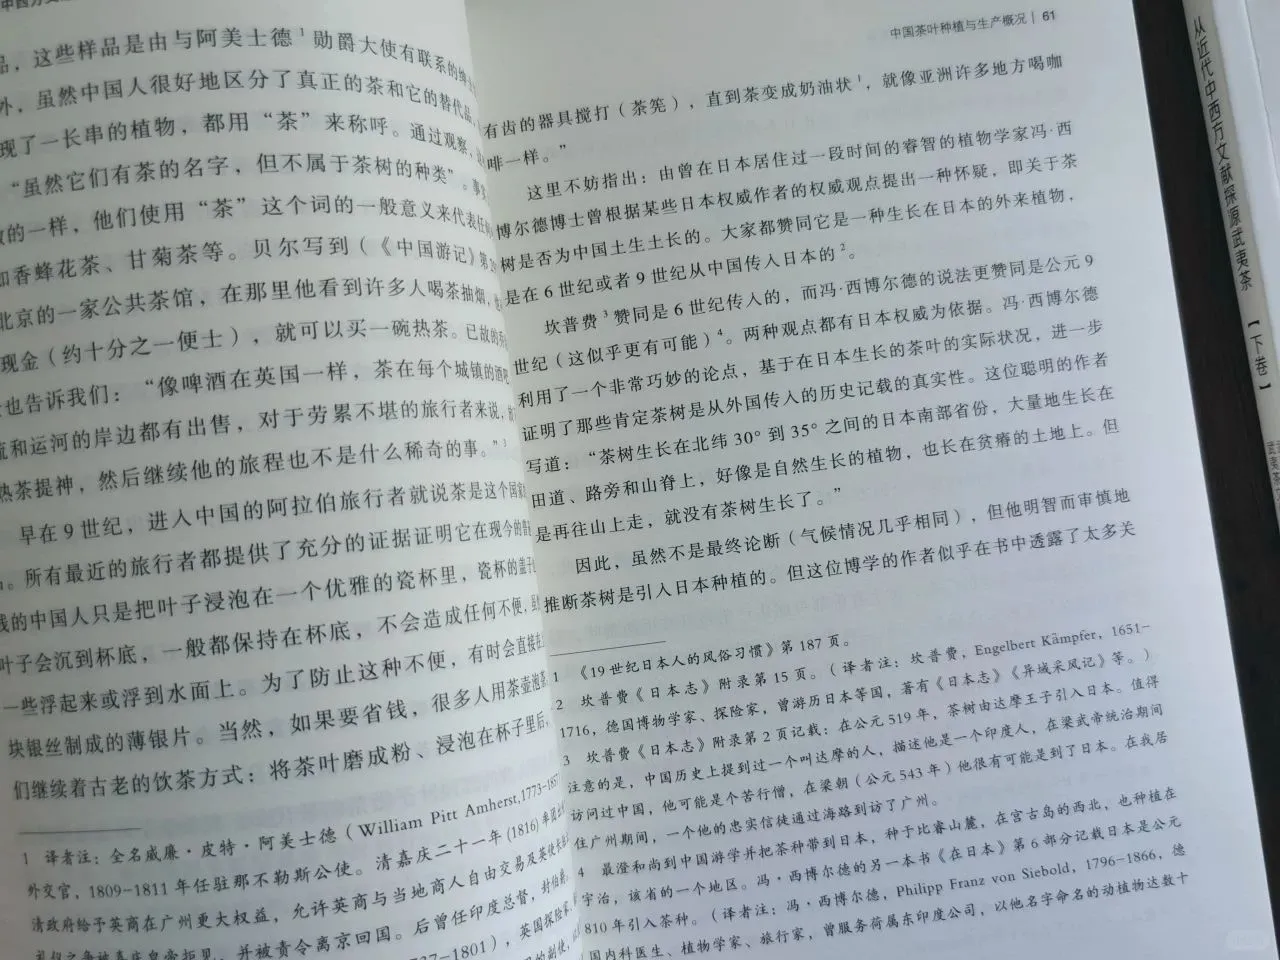 品，这些样品是由与阿美士德1勋爵大使有联系的
外，虽然中国人很好地区分了真正的茶和它的替代品
现了一长串的植物，都用“茶”来称呼。通过观察
“虽然它们有茶的名字，但不属于茶树的种类”。
的一样，他们使用“茶”这个词的一般意义来代表任
如香蜂花茶、甘菊茶等。贝尔写到（《中国游记》第
北京的一家公共茶馆，在那里他看到许多人喝茶抽烟，
现金（约十分之一便士），就可以买一碗热茶。已故的
也告诉我们：“像啤酒在英国一样，茶在每个城镇的酒
流和运河的岸边都有出售，对于劳累不堪的旅行者来说，
热茶提神，然后继续他的旅程也不是什么稀奇的事。”3
早在9世纪，进入中国的阿拉伯旅行者就说茶是这个国家
。所有最近的旅行者都提供了充分的证据证明它在现今的普
的中国人只是把叶子浸泡在一个优雅的瓷杯里，瓷杯的盖子
叶子会沉到杯底，一般都保持在杯底，不会造成任何不便，
一些浮起来或浮到水面上。为了防止这种不便，有时会直接在
块银丝制成的薄银片。当然，如果要省钱，很多人用茶壶泡茶
们继续着古老的饮茶方式：将茶叶磨成粉、浸泡在杯子里后，
1 译者注：全名威廉·皮特·阿美士德（William Pitt Amherst,1773-1857
外交官，1809-1811年任驻那不勒斯公使。清嘉庆二十一年(1816)率团
清政府给予英商在广州更大权益，允许英商与当地商人自由交易及英使
并被责令离京回国。后曾任印度总督，封伯爵。
37-1801），英国探险家
中国茶叶种植与生产概况 | 61
有齿的器具搅打（茶筅），直到茶变成奶油状1，就像亚洲许多地方喝咖
啡一样。”
这里不妨指出：由曾在日本居住过一段时间的睿智的植物学家冯·西
博尔德博士曾根据某些日本权威作者的权威观点提出一种怀疑，即关于茶
树是否为中国土生土长的。大家都赞同它是一种生长在日本的外来植物，
是在6世纪或者9世纪从中国传入日本的2。
坎普费3赞同是6世纪传入的，而冯·西博尔德的说法更赞同是公元9
世纪（这似乎更有可能）4。两种观点都有日本权威为依据。冯·西博尔德
利用了一个非常巧妙的论点，基于在日本生长的茶叶的实际状况，进一步
证明了那些肯定茶树是从外国传入的历史记载的真实性。这位聪明的作者
写道：“茶树生长在北纬30°到35°之间的日本南部省份，大量地生长在
田道、路旁和山脊上，好像是自然生长的植物，也长在贫瘠的土地上。但
是再往山上走，就没有茶树生长了。”
因此，虽然不是最终论断（气候情况几乎相同），但他明智而审慎地
推断茶树是引入日本种植的。但这位博学的作者似乎在书中透露了太多关
1 《19世纪日本人的风俗习惯》第187页。
2 坎普费《日本志》附录第15页。（译者注：坎普费，Engelbert Kämpfer，1651-
1716，德国博物学家、探险家，曾游历日本等国，著有《日本志》《异域采风记》等。）
3 坎普费《日本志》附录第2页记载：在公元519年，茶树由达摩王子引入日本。值得
注意的是，中国历史上提到过一个叫达摩的人，描述他是一个印度人，在梁武帝统治期间
访问过中国，他可能是个苦行僧，在梁朝（公元543年）他很有可能是到了日本。在我居
住广州期间，一个他的忠实信徒通过海路到访了广州。
4 最澄和尚到中国游学并把茶种带到日本，种于比睿山麓，在宫古岛的西北，也种植在
宇治，该省的一个地区。冯·西博尔德的另一本书《在日本》第6部分记载日本是公元
810年引入茶种。（译者注：冯·西博尔德，Philipp Franz von Siebold，1796-1866，德
国内科医生、植物学家、旅行家，曾服务荷属东印度公司，以他名字命名的动植物达数十
从近代中西方文献探源武夷茶【下卷】